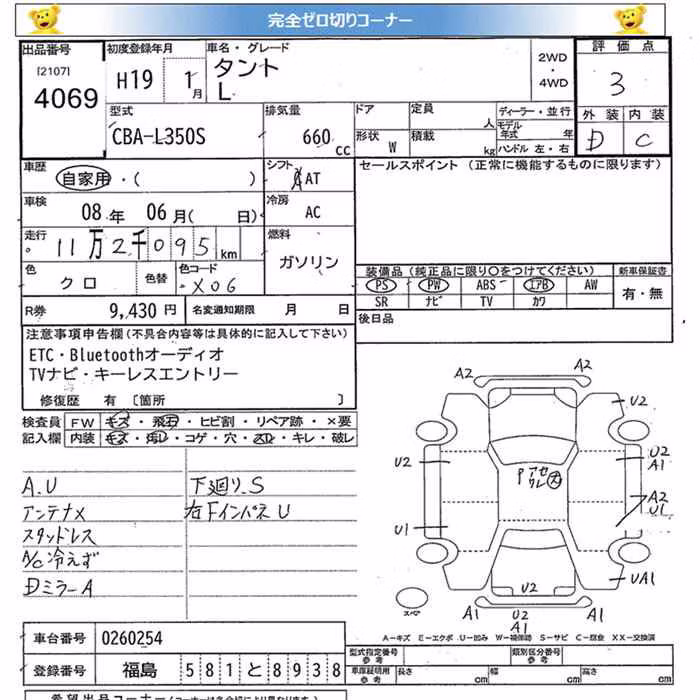 完全ゼロ切りコーナー
出品番号
[2107]
4069
初度登録年月
H19 1月
車名・グレード
タント
L
2WD
・
4WD
評価点
3
外装 内装
D C
型式
CBA-L350S
排気量
660 cc
ドア
形状 W
定員 人
積載 kg
ディーラー・並行
モデル年式 年
ハンドル 左・右
車歴
自家用・( )
シフト
AT
セールスポイント (正常に機能するものに限ります)
車検
08年 06月( 日)
冷房
AC
走行
11万2千095km
燃料
ガソリン
色
クロ
色替
色コード
X06
装備品(純正品に限り○をつけてください)
新車保証書
PS PW ABS エアB AW
SR ナビ TV カワ
有・無
R券
9,430円
名変通知期限 月 日
後日品
注意事項申告欄(不具合内容等は具体的に記入して下さい)
ETC・Bluetoothオーディオ
TVナビ・キーレスエントリー
修復歴 有 〔箇所 〕
検査員
記入欄
FW キズ・飛石・ヒビ割・リペア跡・×要
内装 キズ・汚レ・コゲ・穴・スレ・キレ・破レ
A.U
アンテナX
スタッドレス
A/C冷えず
Dミラー A
下廻り.S
右FインパネU
A2
A2
U2
U2
U2
A1
P アセ
ワレ 大
A2
U1
U1
U2
UA1
A1
U2
A1
A1
スペア
A-キズ E-エクボ U-凹み W-補修跡 S-サビ C-腐食 XX-交換済
車台番号
0260254
型式指定番号
参考
類別区分番号
参考
登録番号
福島 581と8938
車庫証明用
参考
長さ 幅 高さ
希望出品コーナー